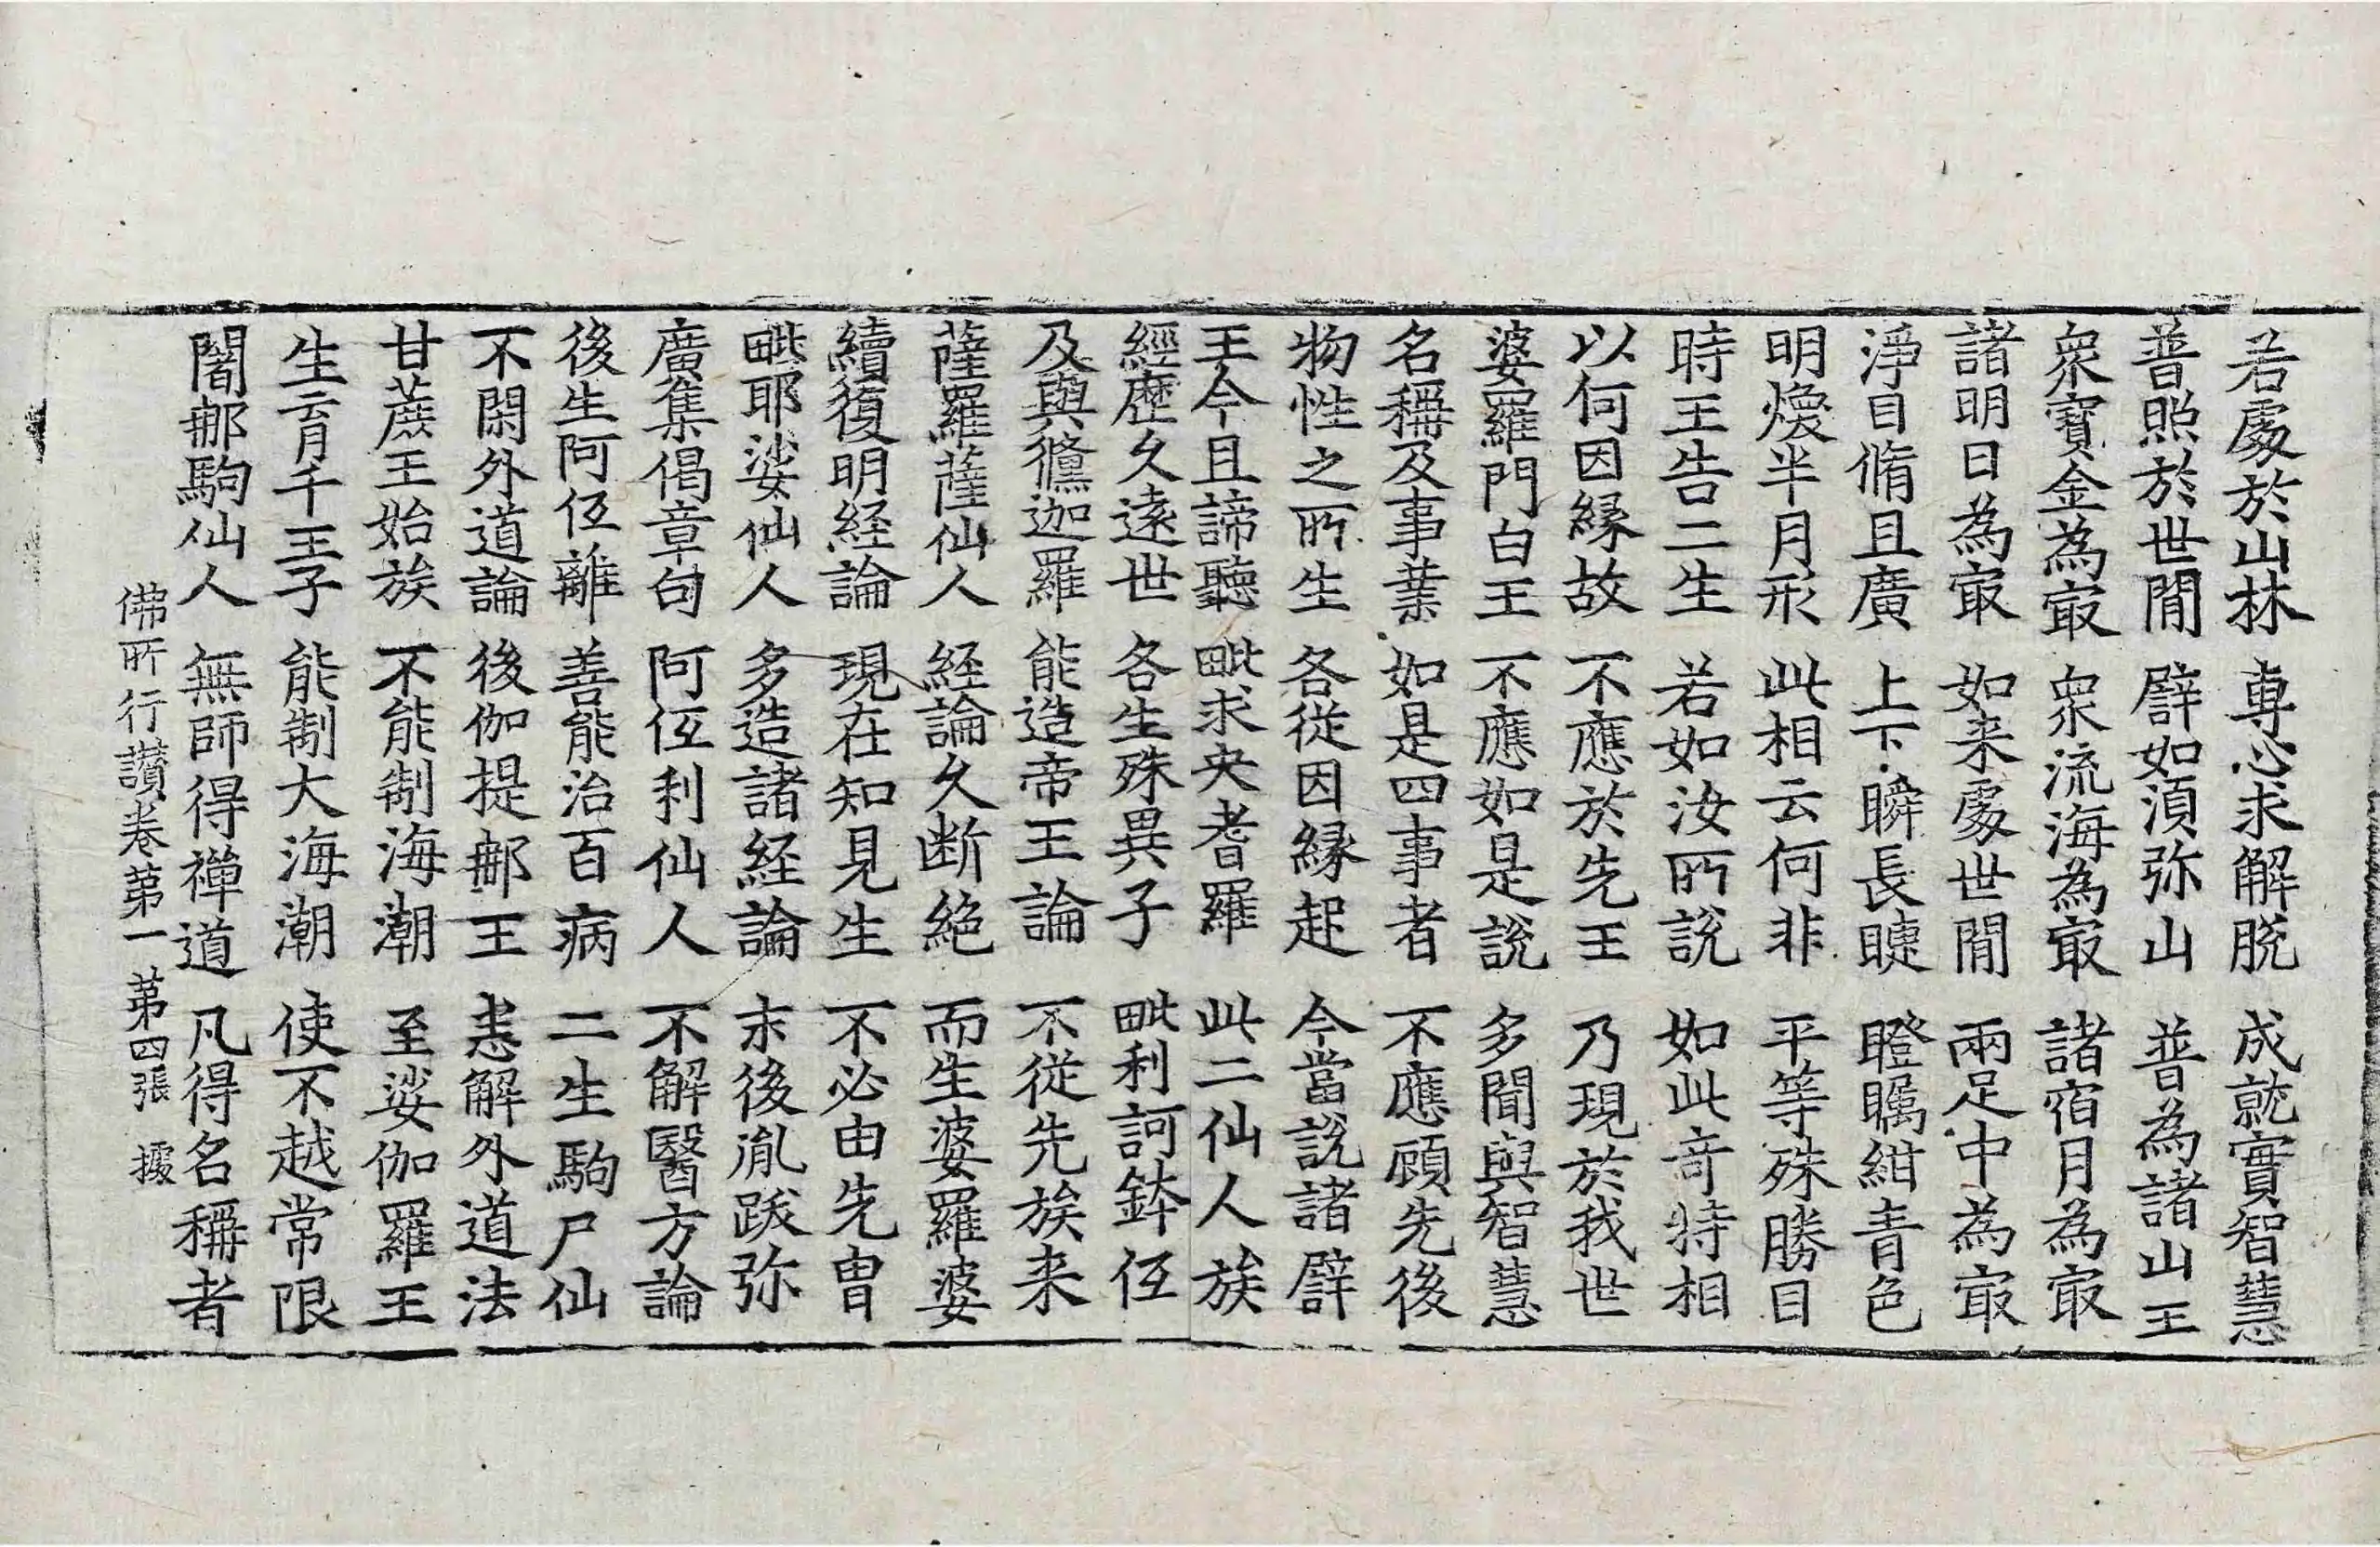 若處於山林 專心求解脫 成就實智慧
普照於世間 譬如湏弥山 普為諸山王
衆寶金為冣 衆流海為冣 諸宿月為冣
諸明日為冣 如来處世間 兩足中為冣
淨目脩且廣 上下瞬長睫 瞪矚紺青色
明煥半月形 此相云何非 平等殊勝目
時王告二生 若如汝所說 如此竒特相
以何因縁故 不應於先王 乃現於我世
婆羅門白王 不應如是說 多聞與智慧
名稱及事業 如是四事者 不應顧先後
物性之所生 各從因縁起 今當說諸譬
王今且諦聽 毗求央耆羅 此二仙人族
經歷久遠世 各生殊異子 毗利訶鉢低
及與儵迦羅 能造帝王論 不從先族来
薩羅薩仙人 経論久断絶 而生婆羅婆
續復明経論 現在知見生 不必由先胄
毗耶娑仙人 多造諸経論 末後胤跋弥
廣集偈章句 阿低利仙人 不解醫方論
後生阿低離 善能治百病 二生駒尸仙
不閑外道論 後伽提那王 悉解外道法
甘蔗王始族 不能制海潮 至娑伽羅王
生育千王子 能制大海潮 使不越常限
闍那駒仙人 無師得禅道 凡得名稱者
佛所行讃卷第一 第四張 據